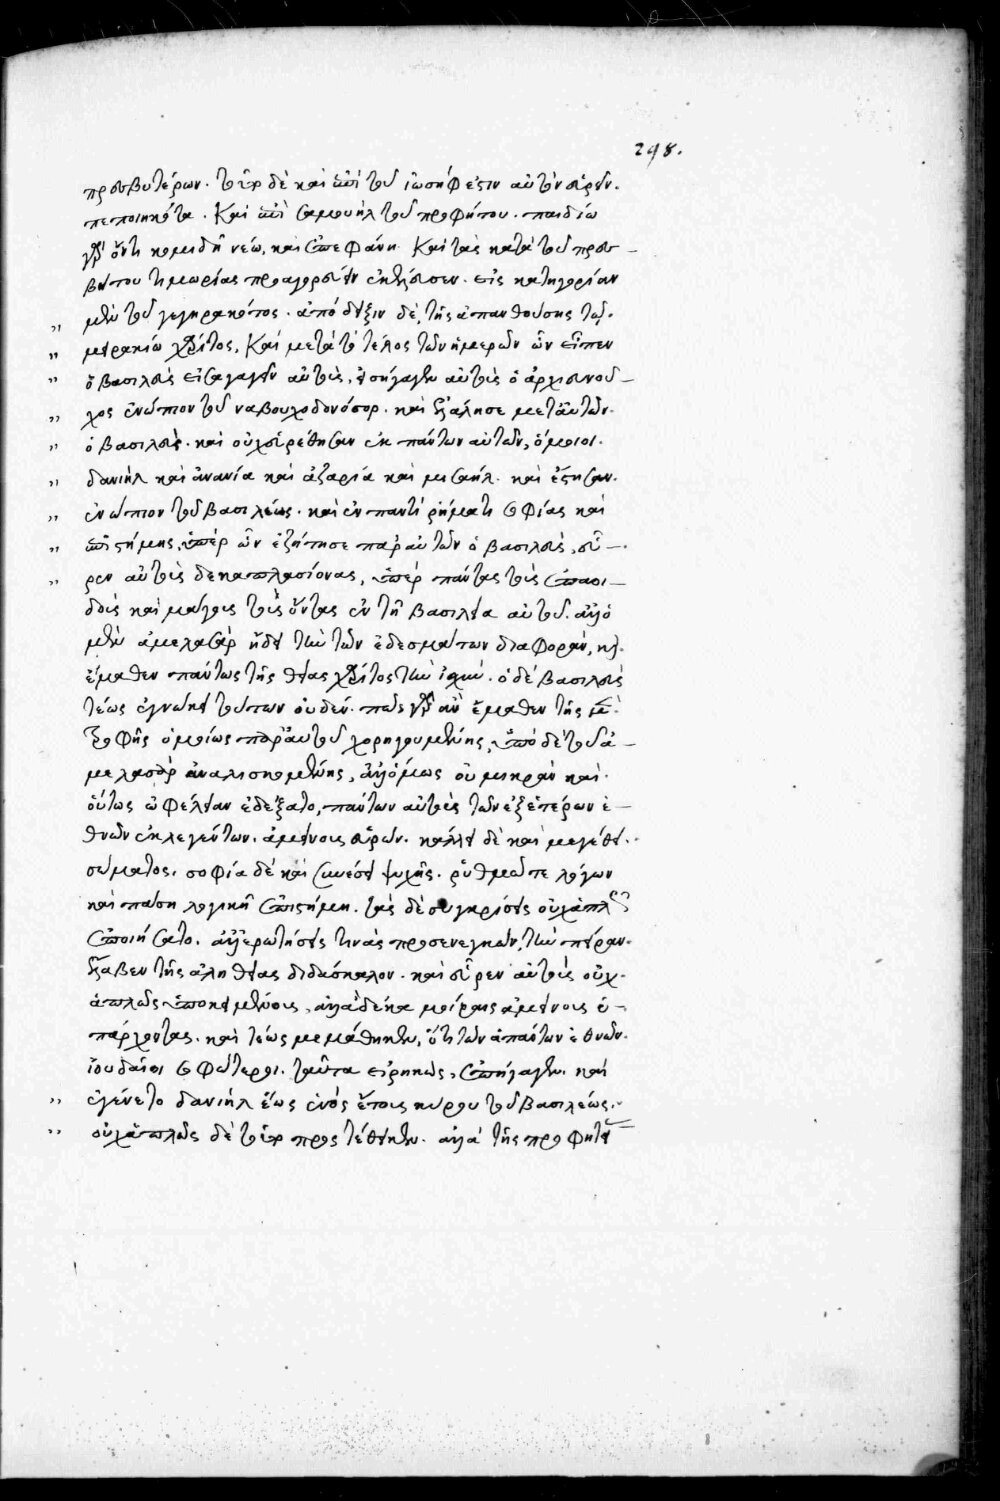 298.
πρεσβυτέρων. τοῦτο δὲ καὶ ἐπὶ τοῦ ἰωσὴφ ἐστιν αὐτὸν εὑρεῖν.
πεποιηκότα. Καὶ ἐπὶ σαμουὴλ τοῦ προφήτου. παιδίω
γὰρ ὄντι κομιδῆ νέω, καὶ ἐπεφάνη. Καὶ τὰς κατὰ τοῦ πρεσ-
βύτου τιμωρίας προαγορεύειν ἐκέλευσεν. εἰς κατηγορίαν
μὲν τοῦ γεγηρακότος. ἀπόδειξιν δὲ, τῆς ἐπανθούσης τῶ.
μειρακίω χάριτος. Καὶ μετὰ τὸ τέλος τῶν ἡμερῶν ὧν εἶπεν
ὁ βασιλεὺς εἰσαγαγεῖν αὐτοὺς, εἰσήγαγεν αὐτοὺς ὁ ἀρχιευνοῦ-
χος ἐνώπιον τοῦ ναβουχοδονόσορ. καὶ ἐλάλησε μετ' αὐτῶν.
ὁ βασιλεύς. καὶ οὐχ εὑρέθησαν ἐκ πάντων αὐτῶν, ὅμοιοι.
δανιὴλ καὶ ἀνανία καὶ ἀζαρία καὶ μισαήλ. καὶ ἔστησαν.
ἐνώπιον τοῦ βασιλέως. καὶ ἐν παντὶ ῥήματι σοφίας καὶ
ἐπιστήμης, ὑπὲρ ὧν ἐζήτησε παρ' αὐτῶν ὁ βασιλεὺς, εὗ-
ρεν αὐτοὺς δεκαπλασίονας, ὑπὲρ πάντας τοὺς ἐπαοι-
δοὺς καὶ μάγους τοὺς ὄντας ἐν τῆ βασιλεία αὐτοῦ. ἀλλ' ὁ
μὲν ἀμελασὰρ ἤδει τὴν τῶν ἐδεσμάτων διαφορὰν, καὶ
ἔμαθεν πάντως τῆς θείας χάριτος τὴν ἰσχύν. ὁ δὲ βασιλεὺς
τέως ἐγνώκει τούτων οὐδέν. πῶς γὰρ ἂν ἔμαθεν τῆς μὲν
τροφῆς ὁμοίως παρ' αὐτοῦ χορηγουμένης, ὑπὸ δὲ τοῦ ἀ-
μελασὰρ ἀναλισκομένης, ἀλλ' ὅμως οὐ μικρὰν καὶ.
οὕτως ὠφέλειαν ἐδέξατο, πάντων αὐτοὺς τῶν ἐξ ἑτέρων ἐ-
θνῶν ἐκλεγέντων. ἀμείνους εὑρών. κάλλει δὲ καὶ μεγέθει.
σώματος. σοφία δὲ καὶ συνέσει ψυχῆς. ῥυθμῶ τε λόγων
καὶ πάση λογικῆ ἐπιστήμη. τὰς δὲ συγκρίσεις οὐχ ἁπλῶς
ἐποιήσατο. ἀλλ' ἐρωτήσεις τινὰς προσενεγκὼν, τὴν πεῖραν.
ἔλαβεν τῆς ἀληθείας διδάσκαλον. καὶ εὗρεν αὐτοὺς οὐχ.
ἁπλῶς ὑποκειμένους, ἀλλὰ δέκα μοίραις ἀμείνους ὑ-
πάρχοντας. καὶ τέως μεμάθηκεν, ὅτι τῶν ἁπάντων ἐθνῶν.
ἰουδαῖοι σοφώτεροι. ταῦτα εἰρηκὼς, ἐπήγαγεν. καὶ
ἐγένετο δανιὴλ ἕως ἑνὸς ἔτους κύρου τοῦ βασιλέως.
οὐχ ἁπλῶς δὲ τοῦτο προστέθεικεν. ἀλλὰ τῆς προφητεί